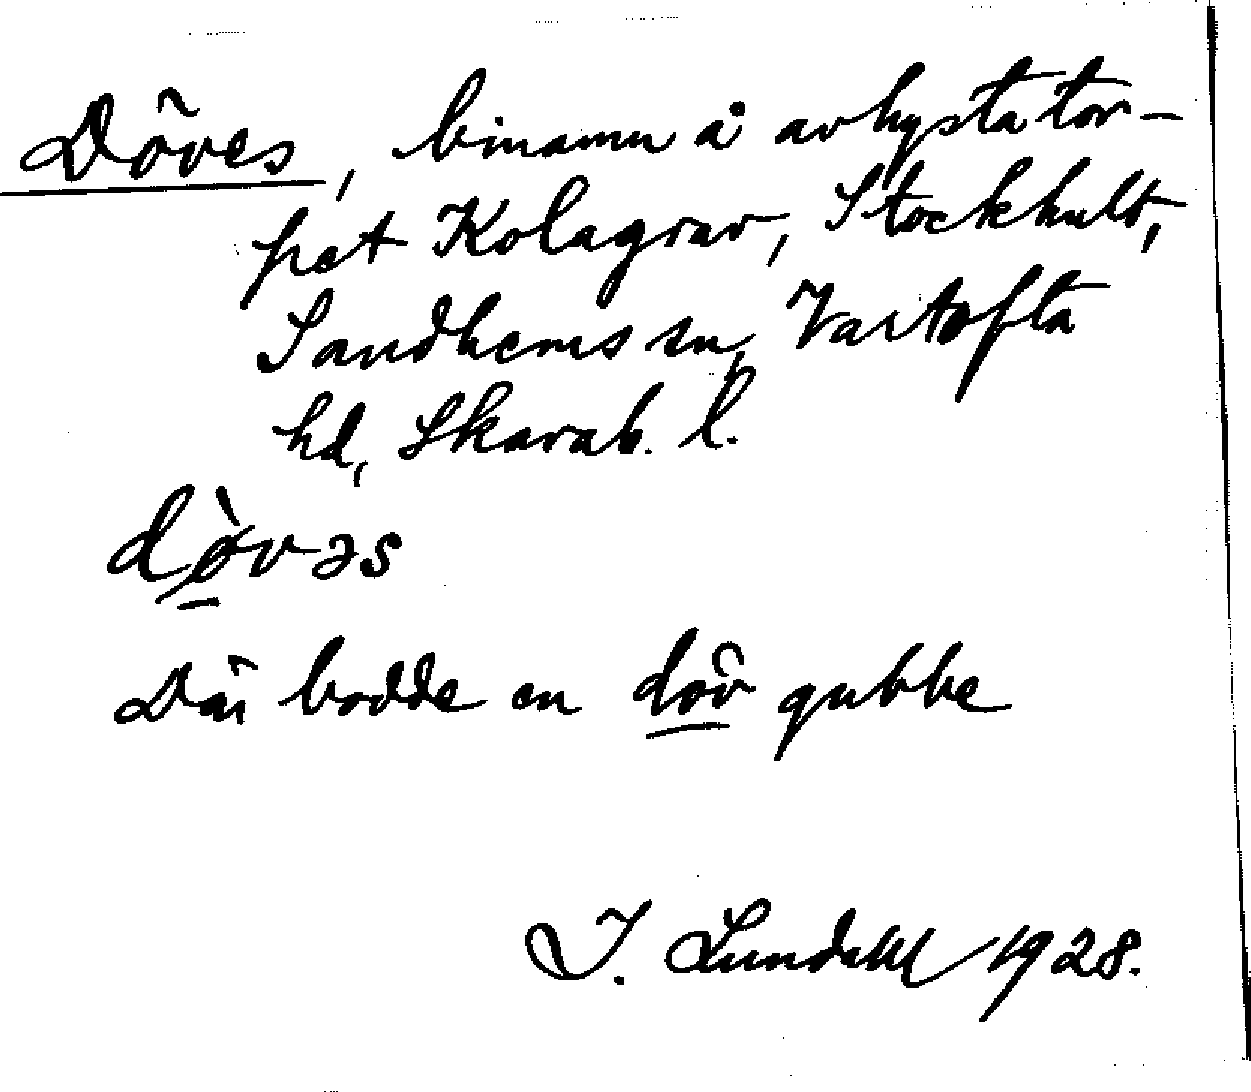 Döves, binamn å avhysta tor-
pet Kolagrav, Stockhult,
Sandhems sn, Vartofta
hd, Skarab. l.
dø̀vəs
Där bodde en döv gubbe
I. Lundahl 1928.